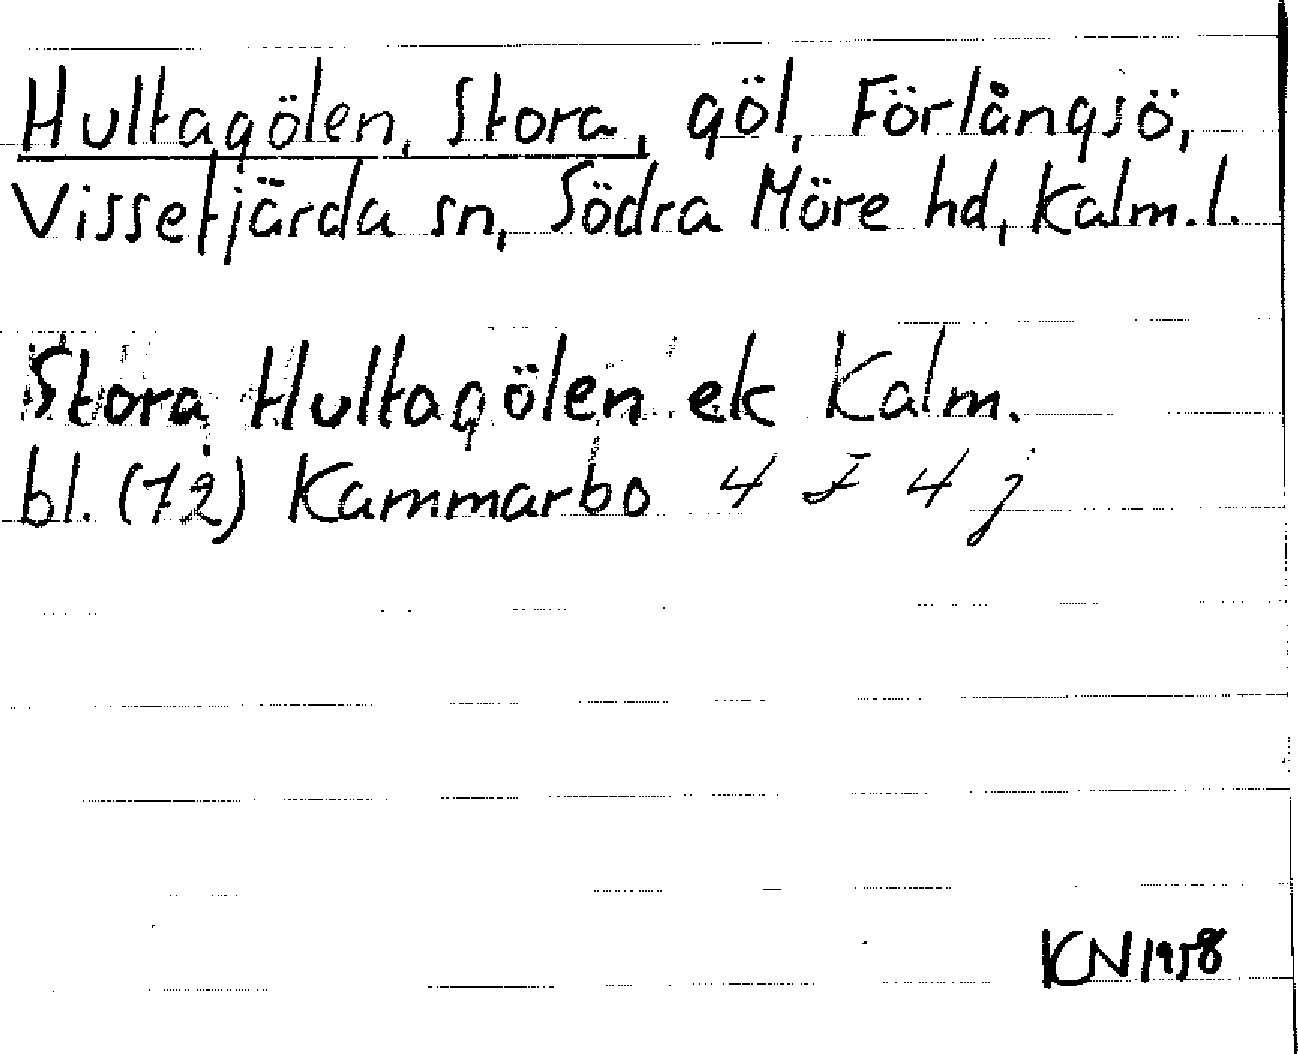 Hultagölen, Stora, göl, Förlångsjö,
Vissefjärda sn, Södra Möre hd, Kalm. l.
Stora Hultagölen ek Kalm.
bl. (72) Kammarbo 4 F 4 j
KN 1958